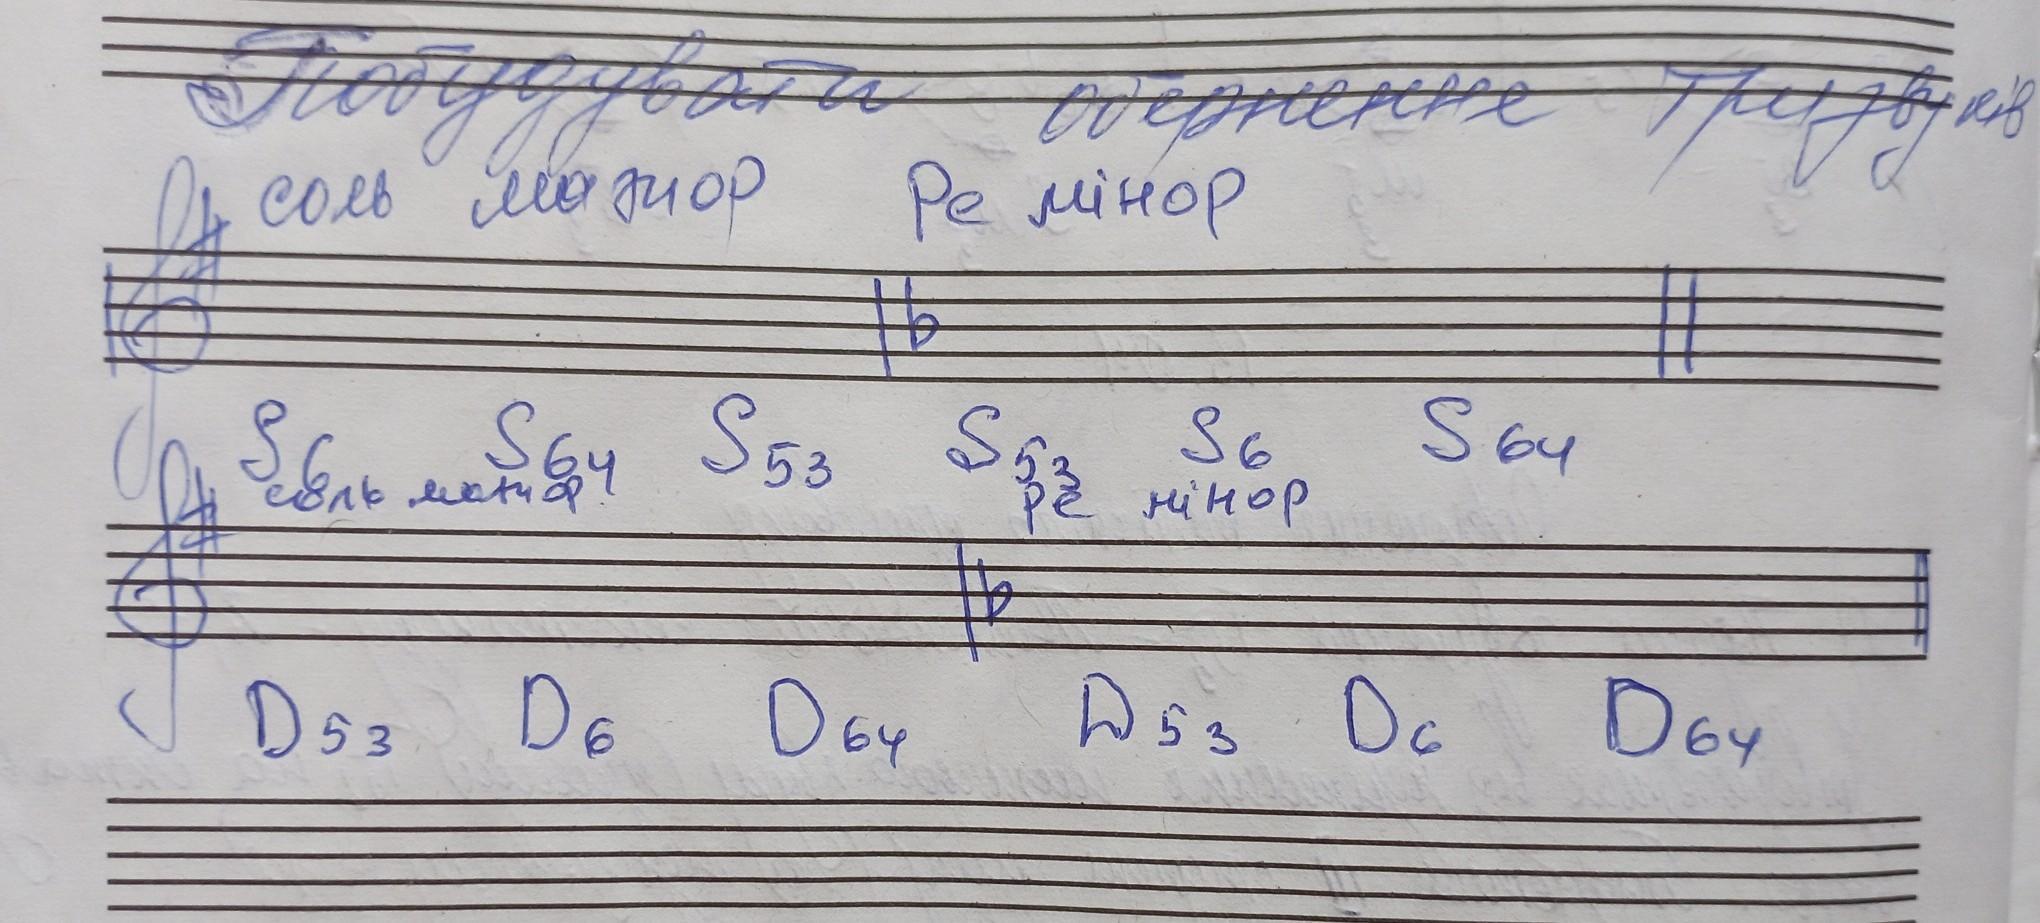 Побудувати обернене тризвуків
соль мажор Ре мінор
S6 S64 S53 S53 S6 S64
соль мажор ре мінор
D53 D6 D64 D53 D6 D64